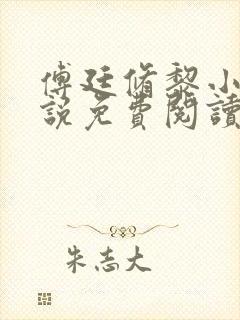 傅廷脩黎小
說免費閱讀
朱志大